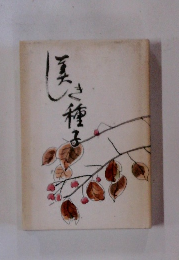 美しき種子